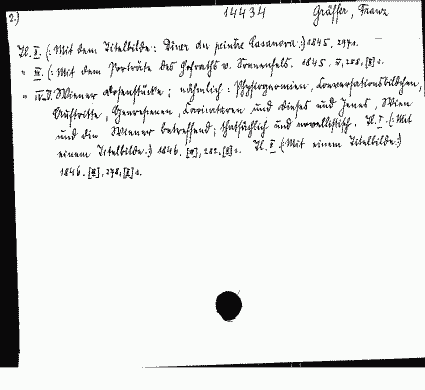 2.) 14434 Gräffer, Franz
Tl. II. (: Mit dem Titelbilde: Diner du peintre Casanova :) 1845. 297 S.
" III. (: Mit dem Porträte des Hofraths v. Sonnenfels. 1845. V, 288, [II] S.
" IV–V. Wiener Dosenstücke; nähmlich: Physiognomien, Conversationsbildchen,
Auftritte, Genrescenen, Caricaturen und Dieses und Jenes, Wien
und die Wiener betreffend; thatsächlich und novellistisch. Tl. I (: Mit
einem Titelbilde :) 1846. [IV], 282, [II] S. Tl. II (: Mit einem Titelbilde :)
1846. [II], 278, [II] S.